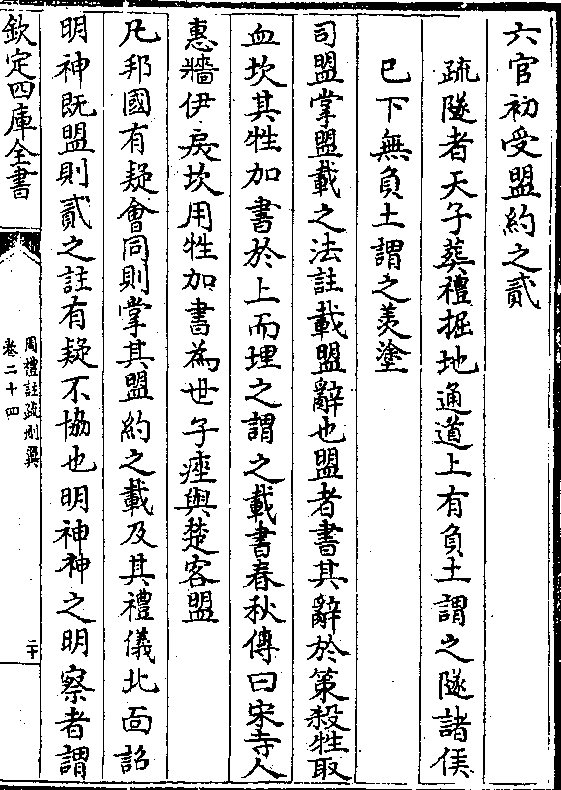 六官初受盟約之貳
疏隧者天子葬禮掘地通道上有負土謂之隧諸侯
已下無負土謂之羨塗
司盟掌盟載之法註載盟辭也盟者書其辭於策殺牲取
血坎其牲加書於上而埋之謂之載書春秋傳曰宋寺人
惠牆伊戾坎用牲加書為世子痤與楚客盟
凡邦國有疑會同則掌其盟約之載及其禮儀北面詔
明神既盟則貳之註有疑不協也明神神之明察者謂
欽定四庫全書
周禮註疏刪翼
卷二十四
二十